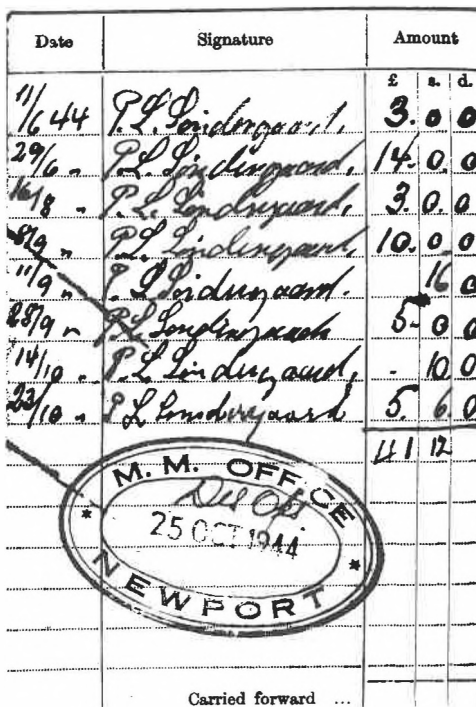 Date Signature Amount
£ s. d.
11/6 44 P.L. Söndergaard, 3. 0 0
29/6 " P.L. Söndergaard, 14. 0. 0
16/8 " P.L. Söndergaard, 3. 0. 0
8/9 " P.L. Söndergaard, 10. 0 0
11/9 " P L Söndergaard. 16 0
28/9 " P.L Söndergaard 5. 0 0
14/10 " P.L Söndergaard, - 10 0
23/10 " P L Söndergaard 5. 6. 0
41 12
M. M. OFFICE
25 OCT 1944
NEWPORT
Carried forward ...